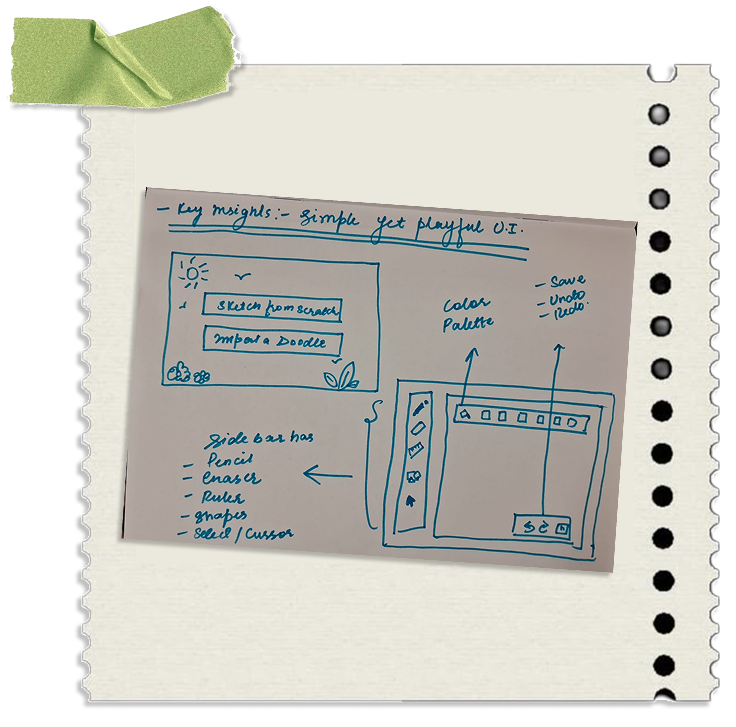 - Key Insights:- Simple yet playful U.I.
Sketch from scratch
Import a Doodle
Color
Palette
- Save
- Undo
- Redo.
Side bar has
- Pencil
- eraser
- Ruler
- shapes
- Select / Cursor